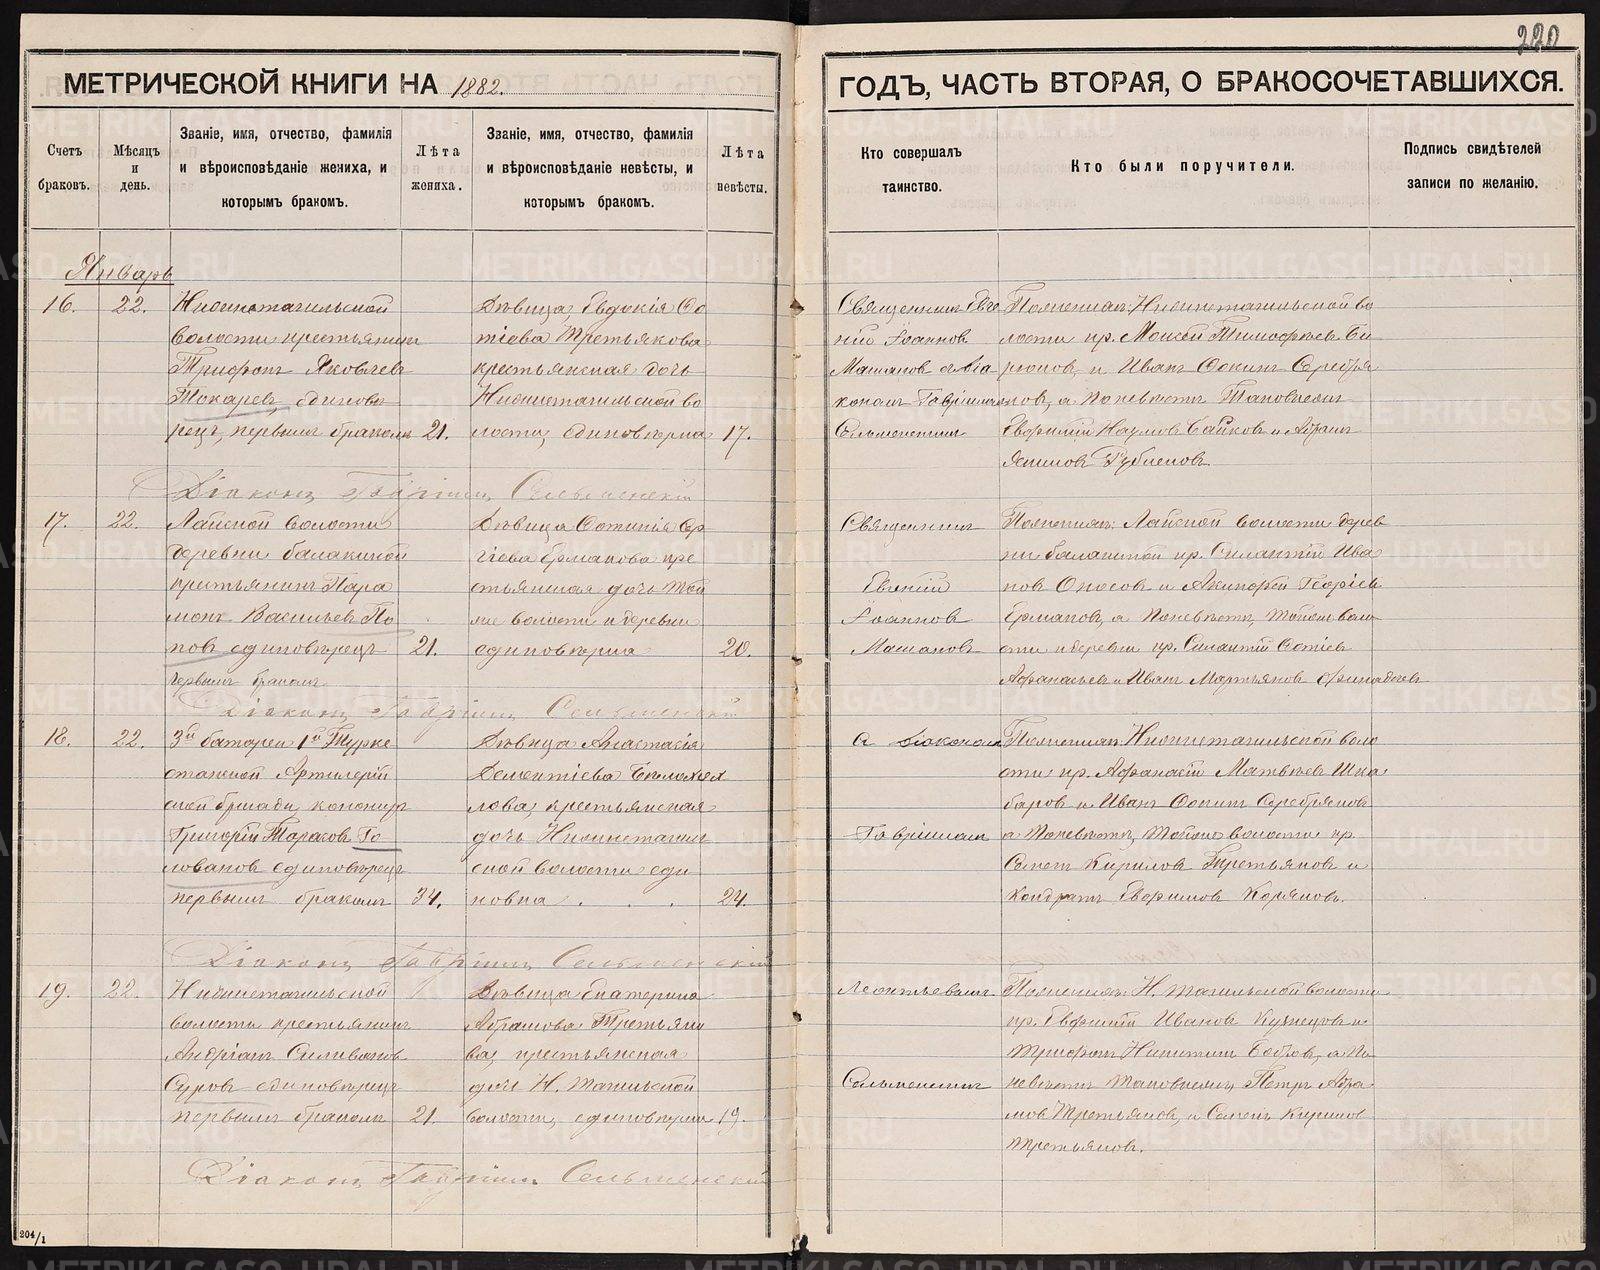 220
МЕТРИЧЕСКОЙ КНИГИ НА 1882.
ГОДЪ, ЧАСТЬ ВТОРАЯ, О БРАКОСОЧЕТАВШИХСЯ.
Счетъ браковъ.
Мѣсяцъ и день.
Званіе, имя, отчество, фамилія
и вѣроисповѣданіе жениха, и
которымъ бракомъ.
Лѣта жениха.
Званіе, имя, отчество, фамилія
и вѣроисповѣданіе невѣсты, и
которымъ бракомъ.
Лѣта невѣсты.
Кто совершалъ
таинство.
Кто были поручители.
Подпись свидѣтелей
записи по желанію.
Январь
16.
22.
Нижнетагильской
волости крестьянинъ
Трифонъ Яковлевъ
Токаревъ, единовѣ
рецъ, первымъ бракомъ
21.
Дѣвица Евдокія Фо
тіева Третьякова
крестьянская дочь
Нижнетагильской во
лости, единовѣрка
17.
Священникъ Евге
ній Іоанновъ
конъ Гавріилъ
Поженихѣ: Нижнетагильской во
лости кр. Моисей Тимофѣевъ Би
рюковъ, и Иванъ Фокинъ Серебря
ковъ, а по невѣстѣ Таковыежъ
Евфимій Наумовъ Байковъ и Абрамъ
Якимовъ
Діаконъ Гавріилъ Сельменскій
17.
22.
Лайской волости
деревни Балакиной
крестьянинъ Пара
монъ Васильевъ По
повъ единовѣрецъ
первымъ бракомъ
21.
Дѣвица Фотинія Сер
гіева Ермакова кре
стьянская дочь той
же волости и деревни
единовѣрка
20.
Священникъ
Евгеній
Іоанновъ
Поженихѣ: Лайской волости дерев
ни Балакиной кр. Силантій Ива
новъ и Георгіевъ
Ермаковъ, а по невѣстѣ, тойже воло
сти и деревни кр. Силантій Фотіевъ
Афанасьевъ и Иванъ Мартьяновъ
Діаконъ Гавріилъ Сельменскій
18.
22.
3й батареи 1й Турке
станской Артилерій
ской бригады канониръ
Григорій Тарасовъ Го
ловановъ единовѣрецъ
первымъ бракомъ
34.
Дѣвица Анастасія
Дементіева
лова, крестьянская
дочь Нижнетагиль
ской волости еди
новка . . .
24.
с діакономъ
Гавріиломъ
Поженихѣ Нижнетагильской воло
сти кр. Афанасій Матвѣевъ Шка
баровъ и Иванъ Фокинъ Серебряковъ
а по невѣстѣ, тойже волости кр.
Семенъ Кириловъ Третьяковъ и
Кондратъ Евфимовъ Коряковъ.
Діаконъ Гавріилъ Сельменскій
19.
22.
Нижнетагильской
волости крестьянинъ
Андріанъ Селивановъ
Суровъ единовѣрецъ
первымъ бракомъ
21.
Дѣвица Екатерина
Абрамова Третьяко
ва, крестьянская
дочь Н. Тагильской
волости, единовѣрка
19.
Леонтьевымъ
Сельменскимъ
Поженихѣ: Н. Тагильской волости
кр. Евфимій Ивановъ Кузнецовъ и
Трифонъ Никитинъ Бобровъ, а по
невѣстѣ таковыежъ Петръ Абра
мовъ Третьяковъ, и Семенъ Кириловъ
Третьяковъ.
Діаконъ Гавріилъ Сельменскій
204/1
METRIKI.GASO-URAL.RU